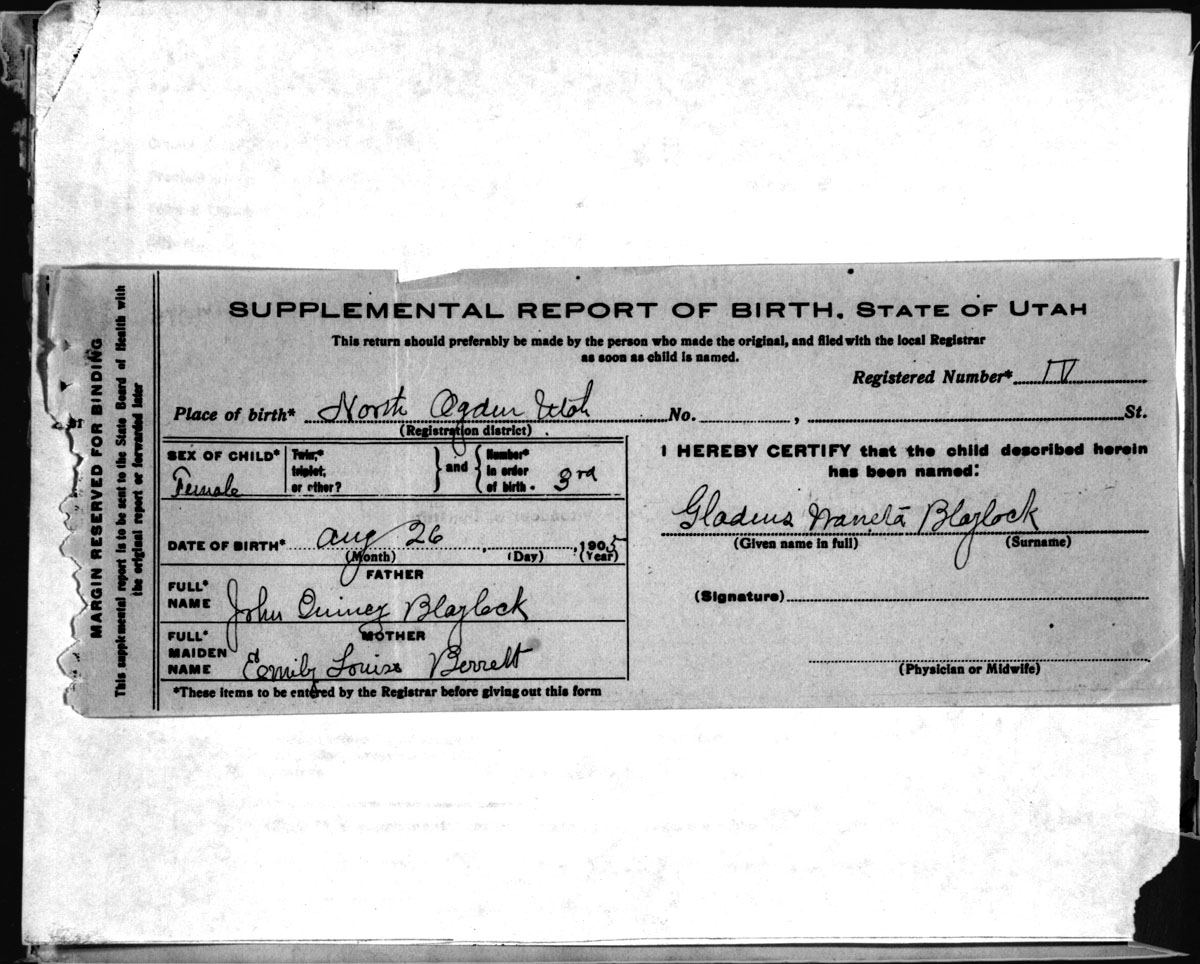 SUPPLEMENTAL REPORT OF BIRTH. STATE OF UTAH
This return should preferably be made by the person who made the original, and filed with the local Registrar
as soon as child is named.
Registered Number* IV
Place of birth* North Ogden Utah No. , St.
(Registration district)
SEX OF CHILD* Female
Twin,* triplet, or other? } and { Number* in order of birth - 3rd
DATE OF BIRTH* Aug 26 , 1905
(Month) (Day) (Year)
FATHER
FULL* NAME John Quincy Blaylock
MOTHER
FULL* MAIDEN NAME Emily Louisa Berrett
*These items to be entered by the Registrar before giving out this form
I HEREBY CERTIFY that the child described herein
has been named:
Blaylock
(Given name in full) (Surname)
(Signature)
(Physician or Midwife)
MARGIN RESERVED FOR BINDING
This supplemental report is to be sent to the State Board of Health with
the original report or forwarded later